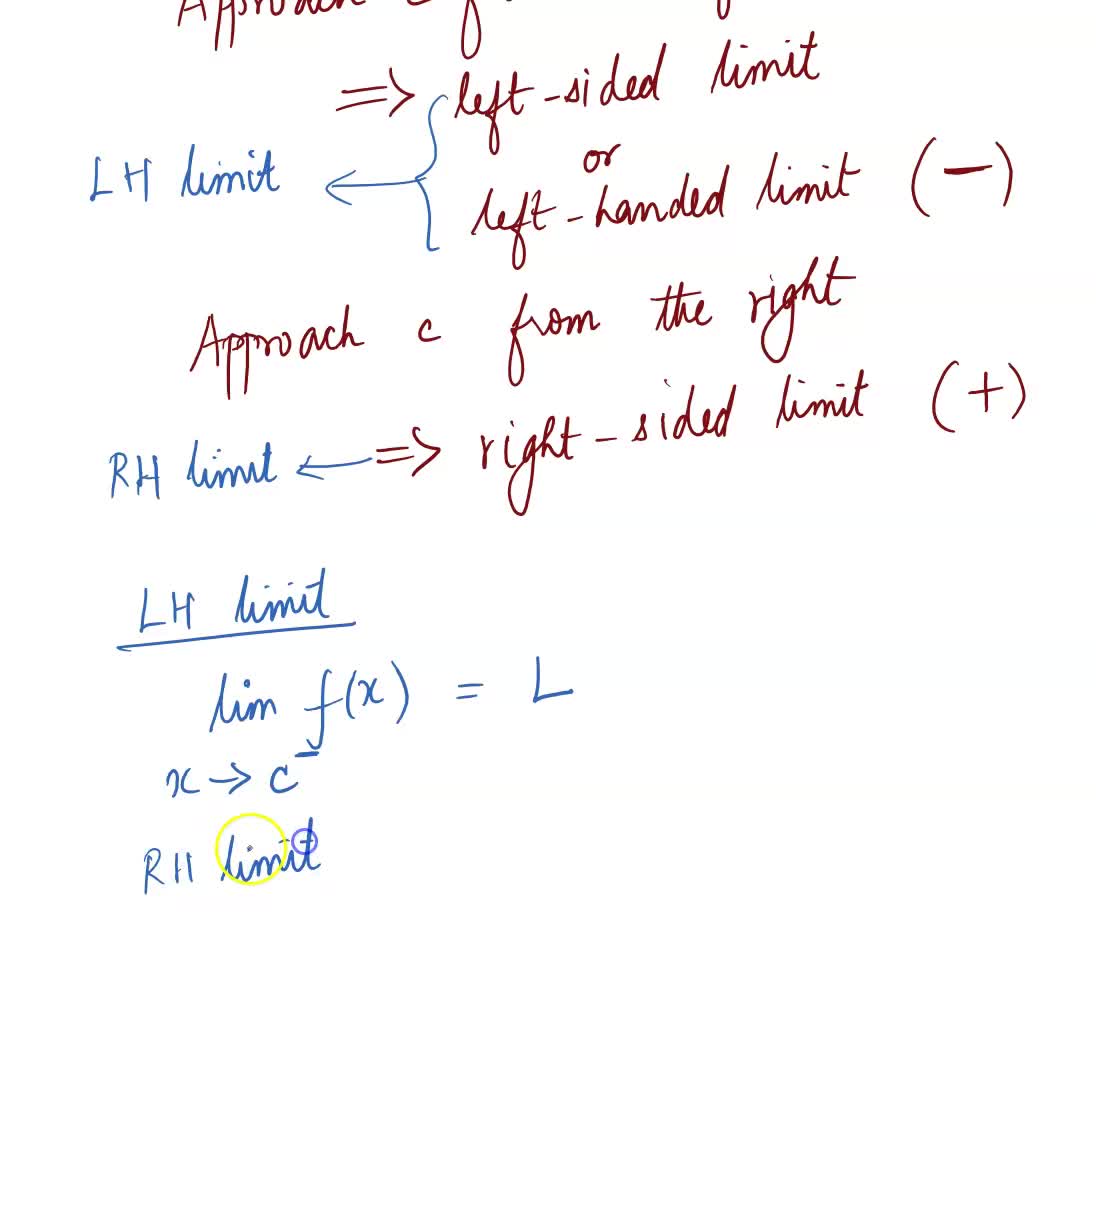 Approach c f
⇒ left-sided limit
or
LH limit ← left-handed limit (−)
Approach c from the right
RH limit ← ⇒ right-sided limit (+)
LH limit
lim f(x) = L
x → c⁻
RH limit